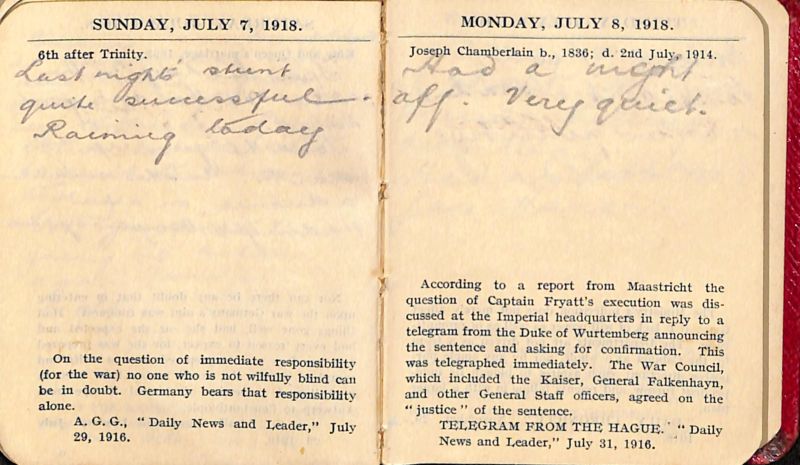 SUNDAY, JULY 7, 1918.
6th after Trinity.
Last nights stunt
quite successful.
Raining today
On the question of immediate responsibility
(for the war) no one who is not wilfully blind can
be in doubt. Germany bears that responsibility
alone.
A. G. G., "Daily News and Leader," July
29, 1916.
MONDAY, JULY 8, 1918.
Joseph Chamberlain b., 1836; d. 2nd July, 1914.
Had a night
off. Very quiet.
According to a report from Maastricht the
question of Captain Fryatt's execution was dis-
cussed at the Imperial headquarters in reply to a
telegram from the Duke of Wurtemberg announcing
the sentence and asking for confirmation. This
was telegraphed immediately. The War Council,
which included the Kaiser, General Falkenhayn,
and other General Staff officers, agreed on the
"justice" of the sentence.
TELEGRAM FROM THE HAGUE. "Daily
News and Leader," July 31, 1916.